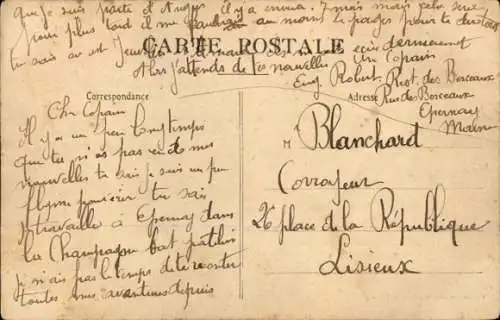 CARTE POSTALE
Correspondance
Adresse
Cher Copain
Il y a un peu longtemps
que tu n'as pas reçu de mes
nouvelles tu sais je suis un peu
flemme pour écrir tu sais
je travaille à Epernay dans
la Champagne
je n'ais pas le temps de te raconter
toutes mes avantures depuis
que je suis parti d'
il y a environ 7 mais mais cela sera
pour plus tard il me faudrait au moins le pages pour te
tu sais
alors j'attends de tes nouvelles un Copain
Eug. Robert Rest. des Berceaux
Rue des Berceaux
Epernay
Marne
M Blanchard
Corroyeur
26 place de la République
Lisieux